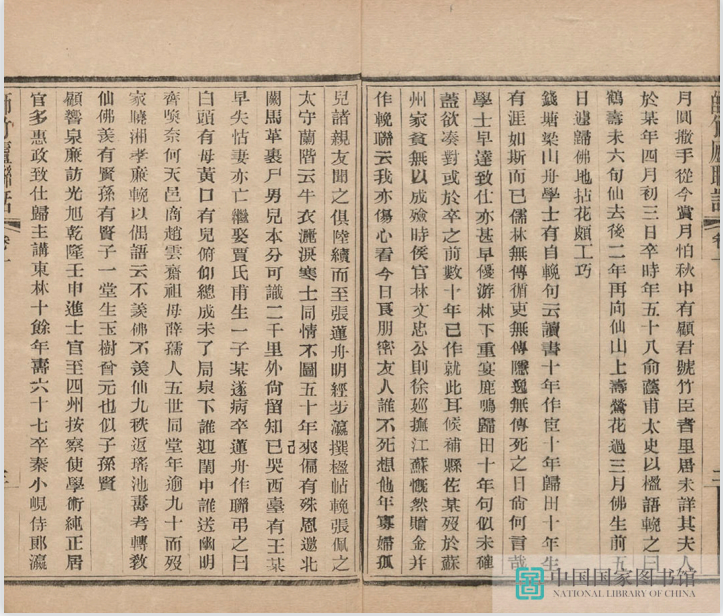 師竹廬聯話
月圓撒手從今賞月怕秋中有顧君號竹臣者里居未詳其夫人
於某年四月初三日卒時年五十八俞蔭甫太史以楹語輓之曰
鶴壽未六旬仙去後二年再向仙山上壽鶯花過三月佛生前五
日邊歸佛地拈花頗工巧
錢塘梁山舟學士有自輓句云讀書十年作宦十年歸田十年生
有涯如斯而已儒林無傳循吏無傳隱逸無傳死之日尙何言哉
學士早達致仕亦甚早優游林下重宴鹿鳴歸田十年句似未確
蓋欲湊對或於卒之前數十年已作就此耳候補縣佐某歿於蘇
州家貧無以成殮時侯官林文忠公則徐廵撫江蘇慨然贈金并
作輓聯云我亦傷心看今日良朋密友人誰不死想他年寡婦孤
兒諸親友聞之俱陸續而至張蓮舟明經步瀛撰楹帖輓張佩之
太守蘭階云牛衣灑淚寒士同情不圖五十年來偏有殊恩邀北
闕馬革裹尸男兒本分可識二千里外尙留知己哭西臺有王某
早失怙妻亦亡繼娶賈氏甫生一子某遂病卒蓮舟作聯弔之曰
白頭有母黃口有兒俯仰總成未了局泉下誰迎閨中誰送幽明
齊喚奈何天邑商趙雲齋祖母薛孺人五世同堂年逾九十而歿
家曉湘孝廉輓以偶語云不羨佛不羨仙九秩返瑤池壽考轉教
仙佛羨有賢孫有賢子一堂生玉樹曾元也似子孫賢
顧響泉廉訪光旭乾隆壬申進士官至四川按察使學術純正居
官多惠政致仕歸主講東林十餘年壽六十七卒秦小峴侍郎瀛
師竹廬聯話
中国国家图书馆
NATIONAL LIBRARY OF CHINA